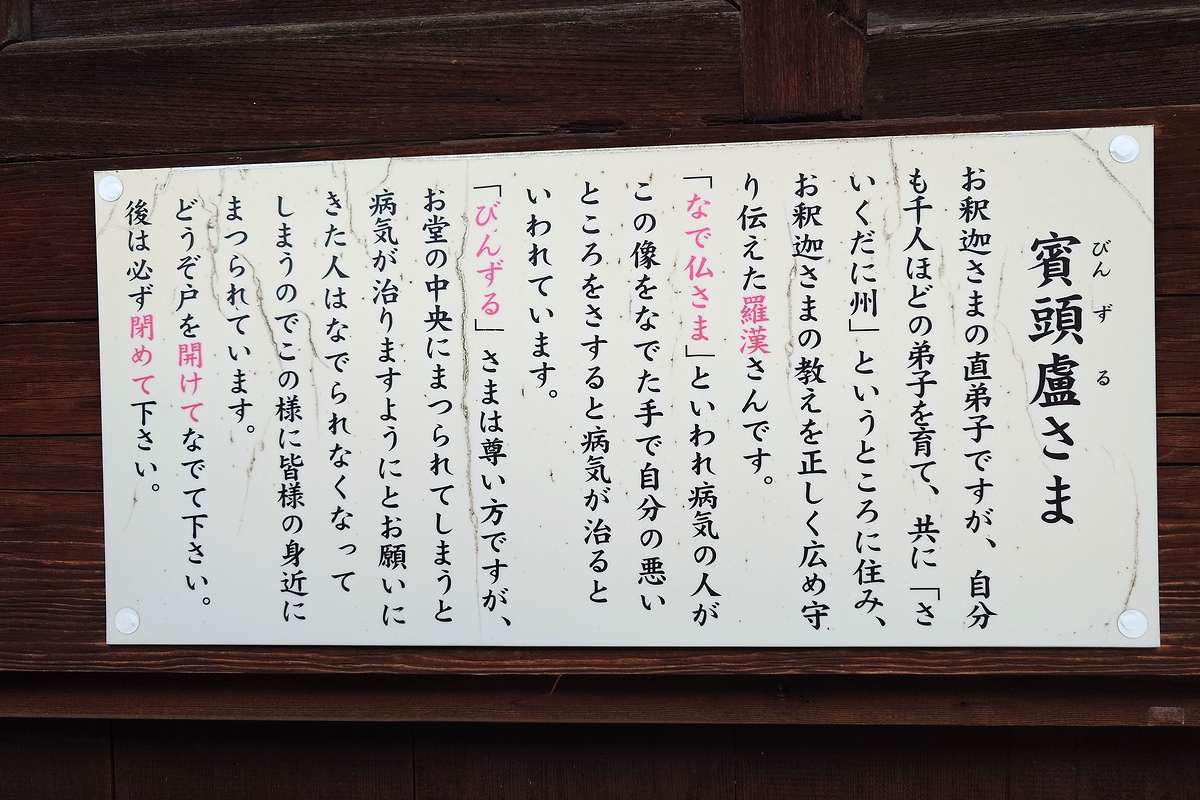 賓頭盧さま
びんずる
お釈迦さまの直弟子ですが、自分
も千人ほどの弟子を育て、共に「さ
いくだに州」というところに住み、
お釈迦さまの教えを正しく広め守
り伝えた羅漢さんです。
「なで仏さま」といわれ病気の人が
この像をなでた手で自分の悪い
ところをさすると病気が治ると
いわれています。
「びんずる」さまは尊い方ですが、
お堂の中央にまつられてしまうと
病気が治りますようにとお願いに
きた人はなでられなくなって
しまうのでこの様に皆様の身近に
まつられています。
どうぞ戸を開けてなでて下さい。
後は必ず閉めて下さい。